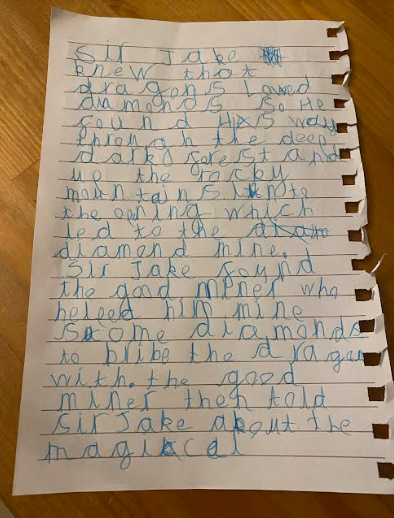 Sir Jake
knew that
dragons loved
diamonds so He
found His way
through the deep
dark forest and
up the rocky
mountains into
the opning which
led to the
diamend mine.
Sir Jake found
the good miner who
helped him mine
some diamonds
to bribe the dragon
with. the good
miner then told
sir Jake about the
magical